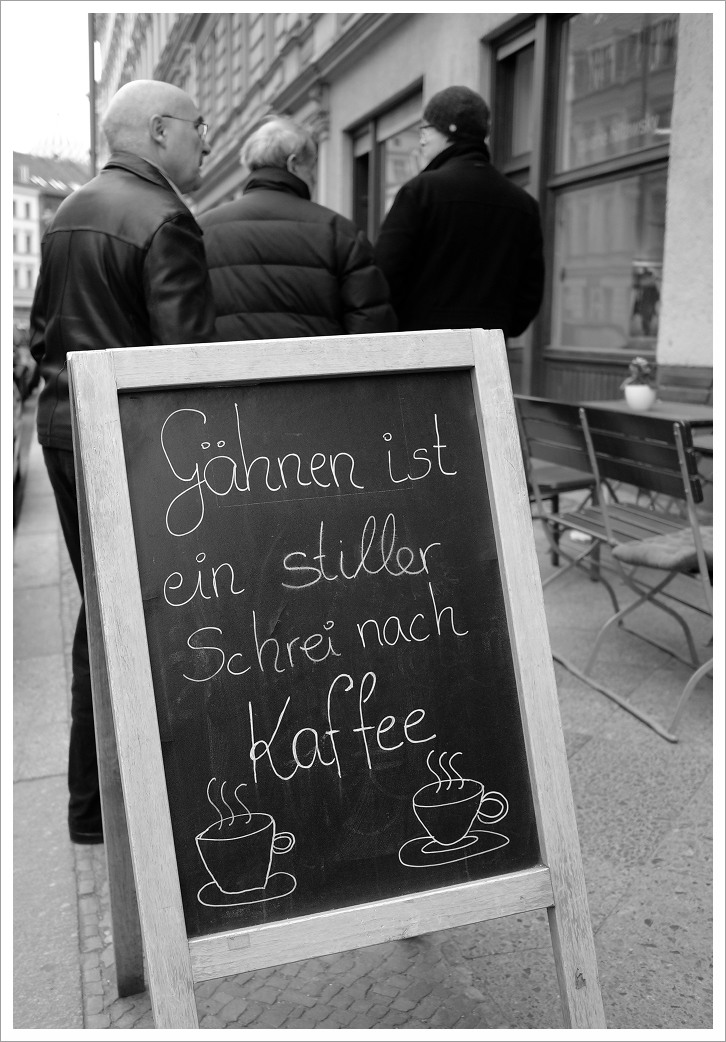 Gähnen ist
ein stiller
Schrei nach
Kaffee